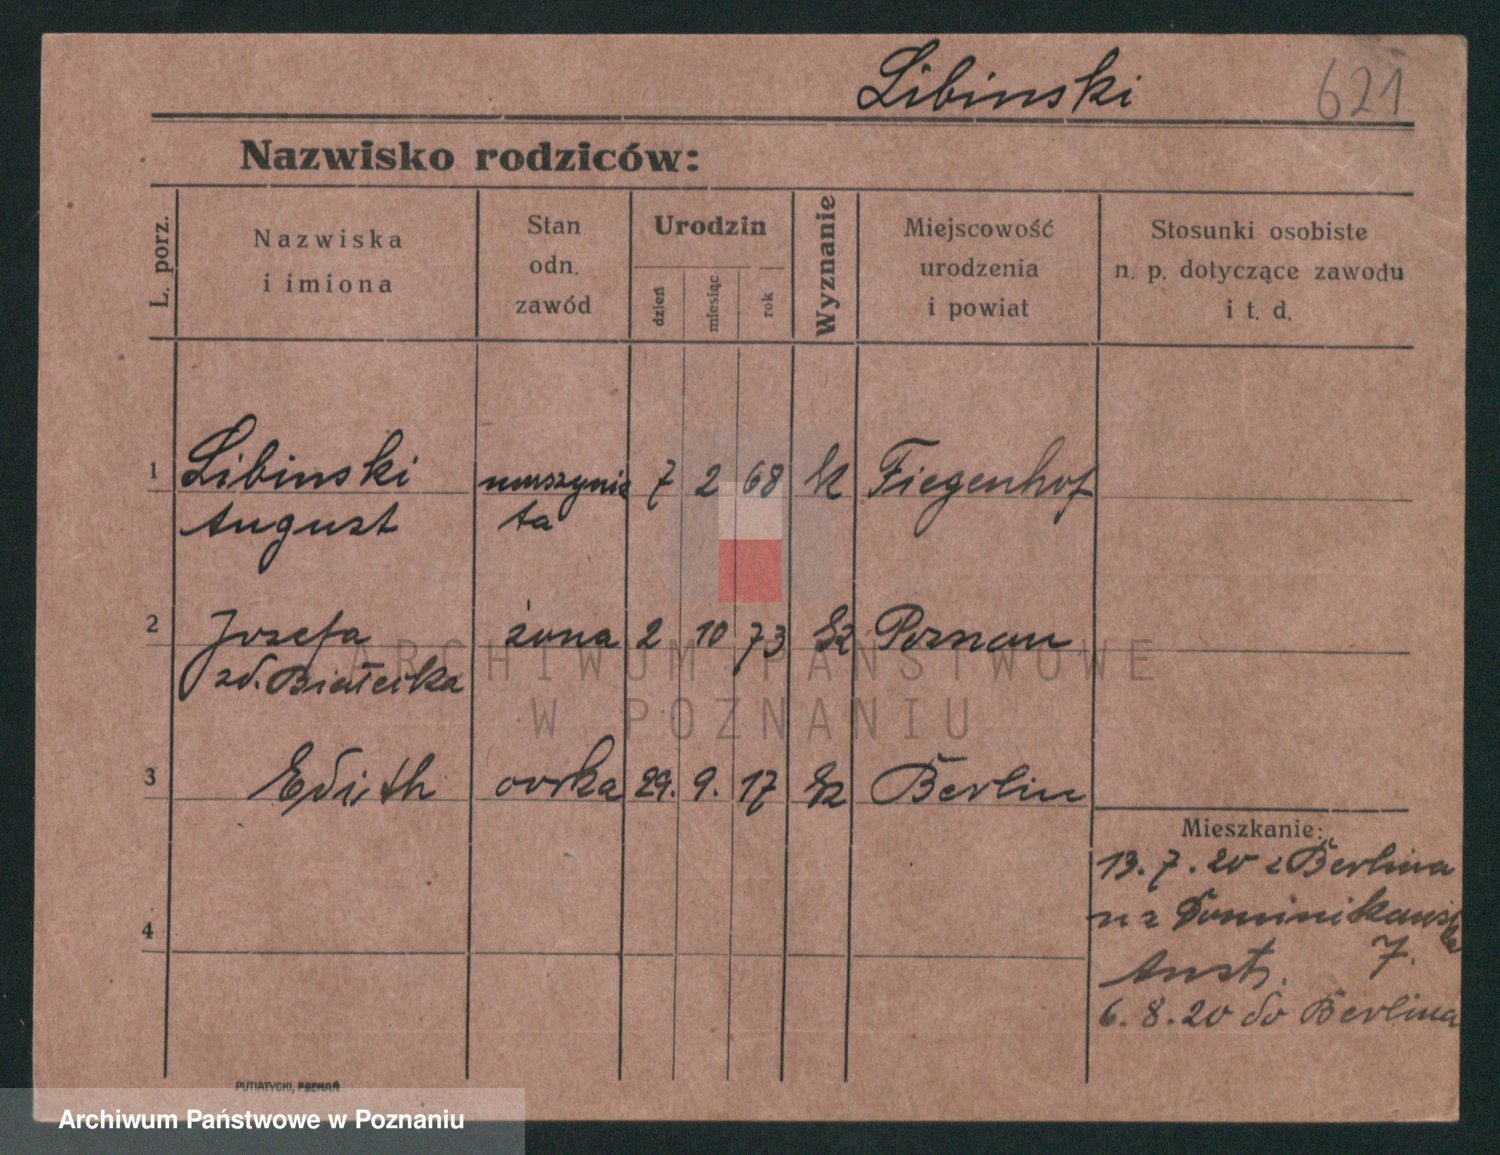 Libinski 621
Nazwisko rodziców:
L. porz.
Nazwiska
i imiona
Stan
odn.
zawód
Urodzin
dzień
miesiąc
rok
Wyznanie
Miejscowość
urodzenia
i powiat
Stosunki osobiste
n. p. dotyczące zawodu
i t. d.
1 Libinski maszynis 7 2 68 k Fiegenhof
August ta
2 Jozefa żona 2 10 73 Poznan
zd. Białecka
3 Edith córka 29. 9. 17 Berlin
Mieszkanie:
13. 7. 20 z Berlina
na Dominikańska
4
7.
6. 8. 20 do Berlina
PUTIATYCKI, POZNAŃ
ARCHIWUM PAŃSTWOWE
W POZNANIU
Archiwum Państwowe w Poznaniu